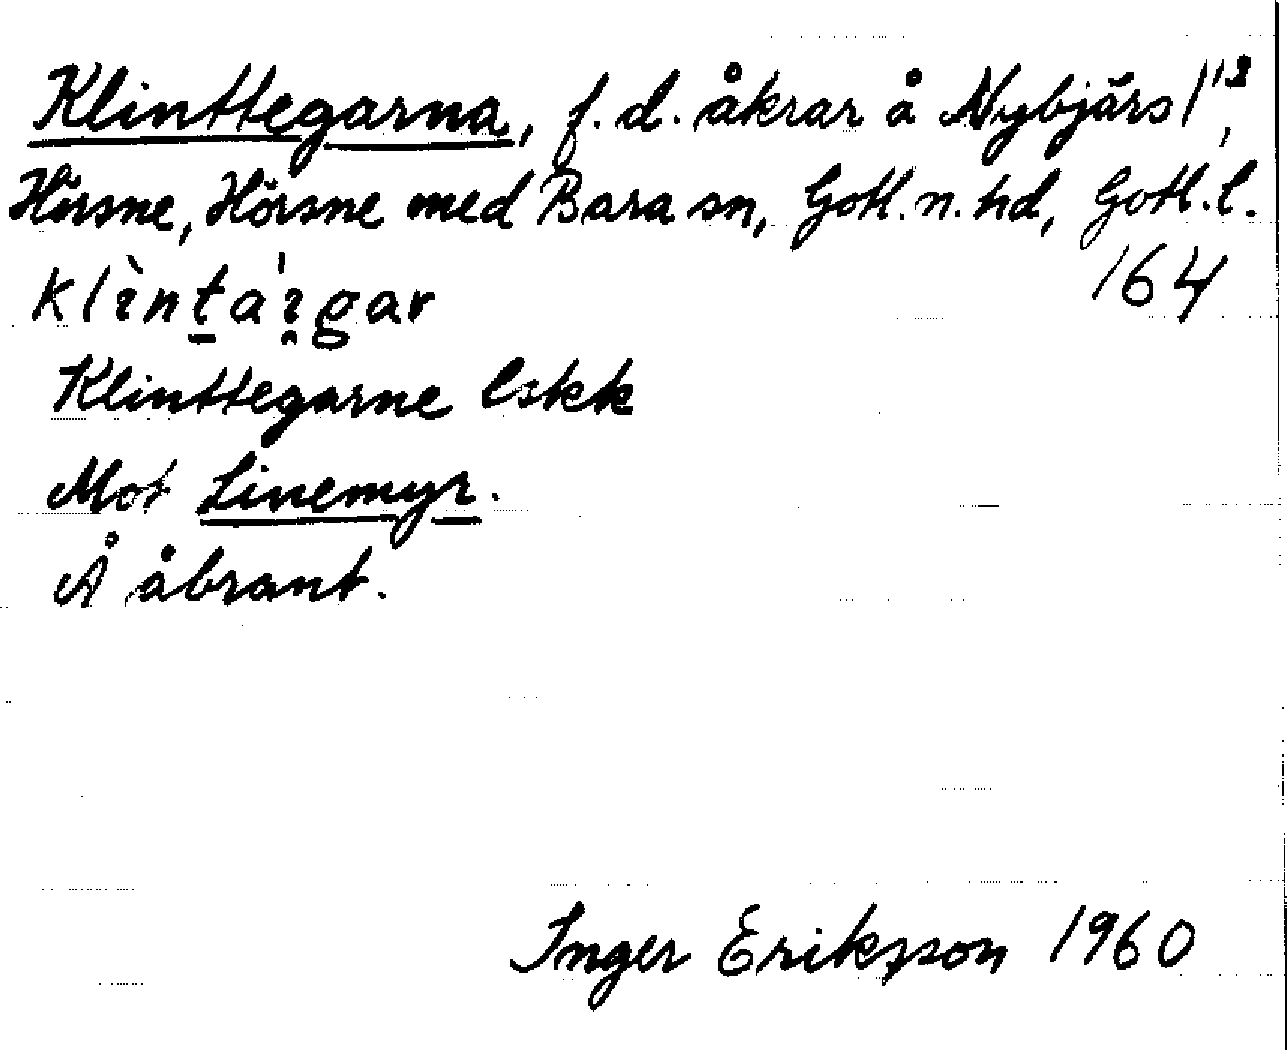 Klinttegarna, f.d. åkrar å Nybjärs 1¹³,
Hörsne, Hörsne med Bara sn, Gotl. n. hd, Gotl. l.
164
klìntáigar
Klinttegarne Eskk
Mot Linemyr.
Å åbrant.
Inger Eriksson 1960